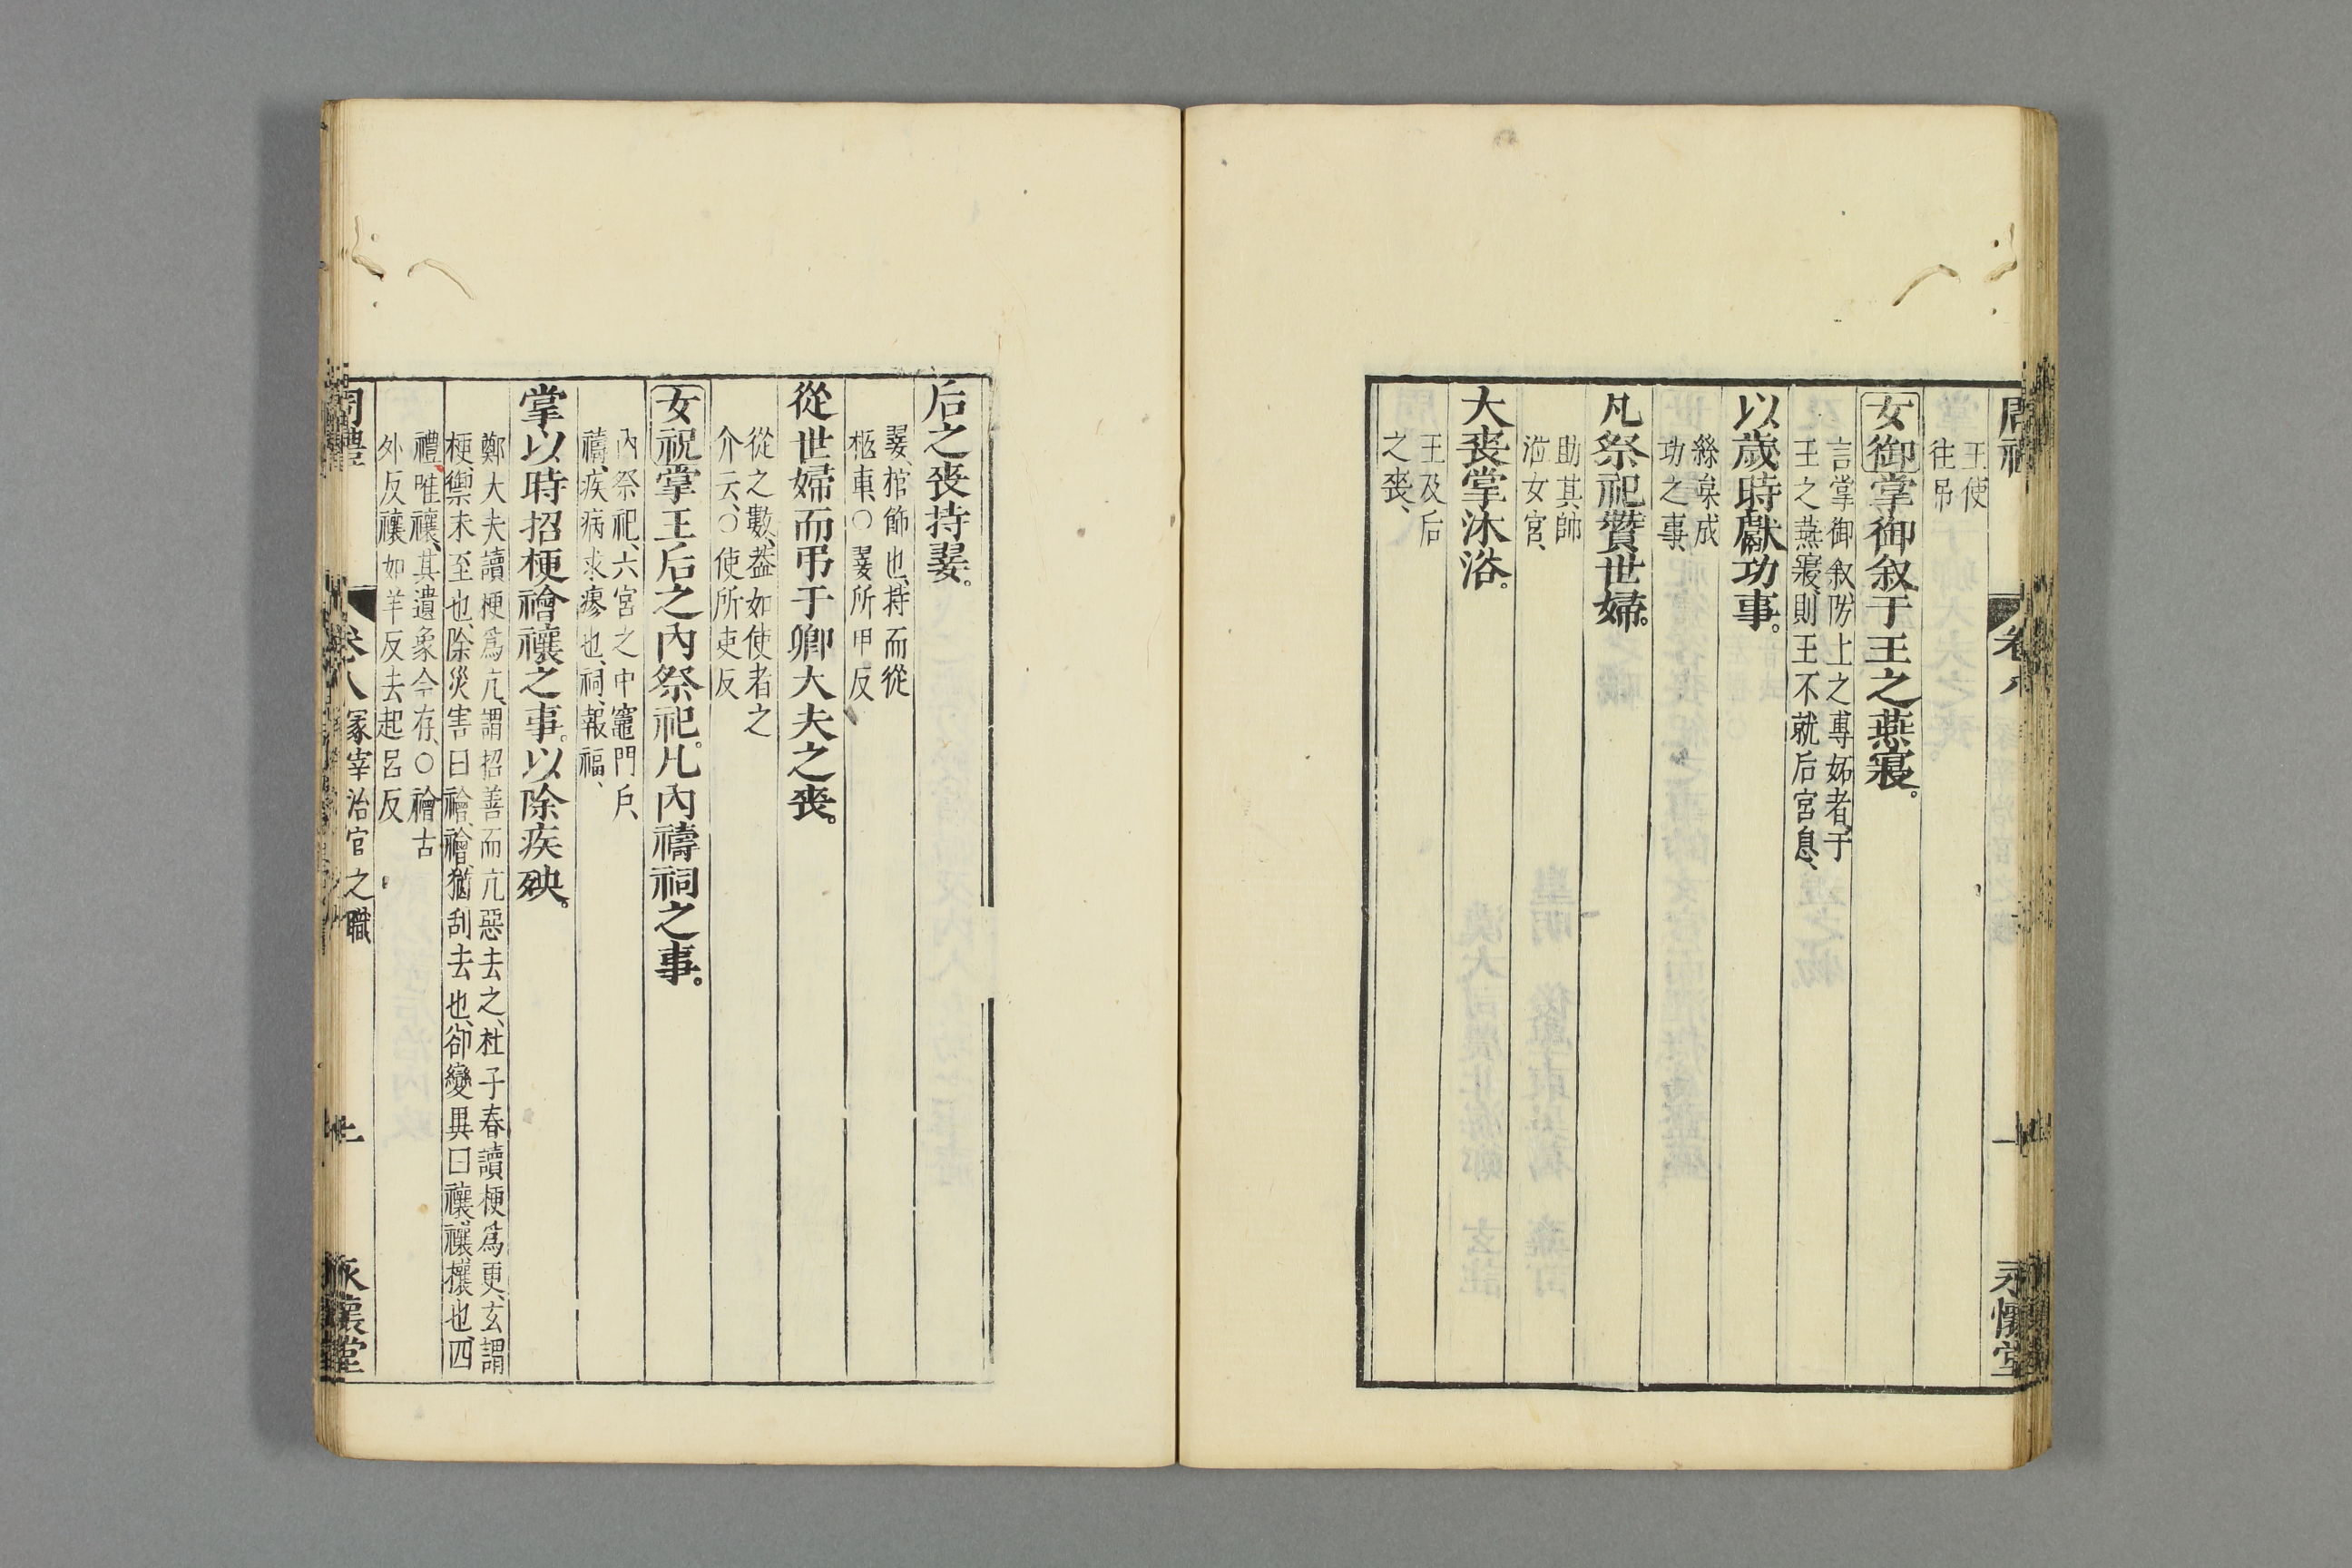 周禮
卷八
一
永懷堂
王使
往吊
女御掌御叙于王之燕寢。
言掌御叙、防上之專妬者、于
王之燕寢、則王不就后宮息、
以歲時獻功事。
絲枲成
功之事、
凡祭祀贊世婦。
助其帥
涖女宮、
大喪掌沐浴。
王及后
之喪、
后之喪持翣。
翣、棺飾也、持而從
柩車、○翣所甲反
從世婦而弔于卿大夫之喪。
從之數、葢如使者之
介云、○使所吏反
女祝掌王后之內祭祀。凡內禱祠之事。
內祭祀、六宮之中竈門戶、
禱、疾病求瘳也、祠、報福、
掌以時招梗禬禳之事。以除疾殃。
鄭大夫讀梗爲亢、謂招善而亢惡去之、杜子春讀梗爲更、玄謂
梗、禦未至也、除災害曰禬、禬猶刮去也、卻變異曰禳、禳、攘也、四
禮唯禳、其遺象今存、○禬古
外反禳如羊反去起呂反
周禮
卷八
冢宰治官之職
永懷堂